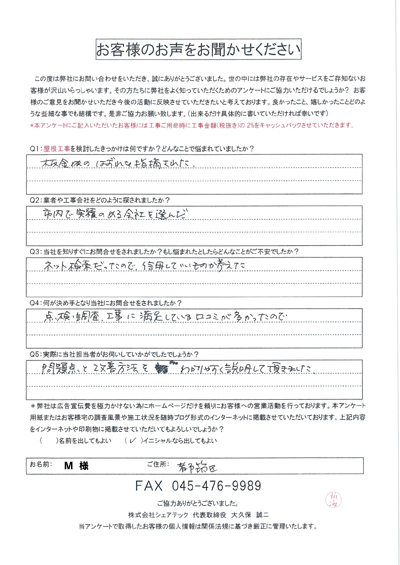 お客様のお声をお聞かせください
この度は弊社にお問い合わせをいただき、誠にありがとうございました。世の中には弊社の存在やサービスをご存知ないお
客様が沢山いらっしゃいます。その方たちに弊社をよく知っていただくためのアンケートにご協力いただけるでしょうか? お客
様のご意見をお聞かせいただき今後の活動に反映させていただきたいと考えております。良かったこと、嬉しかったことどのよ
うな些細な事でも結構です。是非ご協力お願い致します。(出来るだけ具体的に書いていただければ幸いです)
*本アンケートにご記入いただいたお客様には工事ご用命時に工事金額(税抜き)の2%をキャッシュバックさせていただきます。
Q1:屋根工事を検討したきっかけは何ですか?どんなことで悩まれていましたか?
板金の はずれを指摘された。
Q2:業者や工事会社をどのように探されましたか?
市内で実績のある会社を選んだ
Q3:当社を知りすぐにお問合せをされましたか?もし悩まれたとしたらどんなことがご不安でしたか?
ネット検索だったので、信用していいものか考えた
Q4:何が決め手となり当社にお問合せをされましたか?
点検・調査、工事に満足している口コミが多かったので
Q5:実際に当社担当者がお伺いしていかがでしたでしょうか?
問題点と改善方法を わかりやすく説明して頂きました。
*弊社は広告宣伝費を極力かけない為にホームページだけを頼りにお客様への営業活動を行っております。本アンケート
用紙またはお客様宅の調査風景や施工状況を随時ブログ形式のインターネットに掲載させていただいております。上記内容
をインターネットや印刷物に掲載させていただいてもよろしいでしょうか?
( )名前を出してもよい (✓)イニシャルなら出してもよい
お名前: M 様 ご住所: 都筑区
FAX 045-476-9989
ご協力ありがとうございました。
株式会社シェアテック 代表取締役 大久保 誠二
当アンケートで取得したお客様の個人情報は関係法規に基づき厳正に管理いたします。